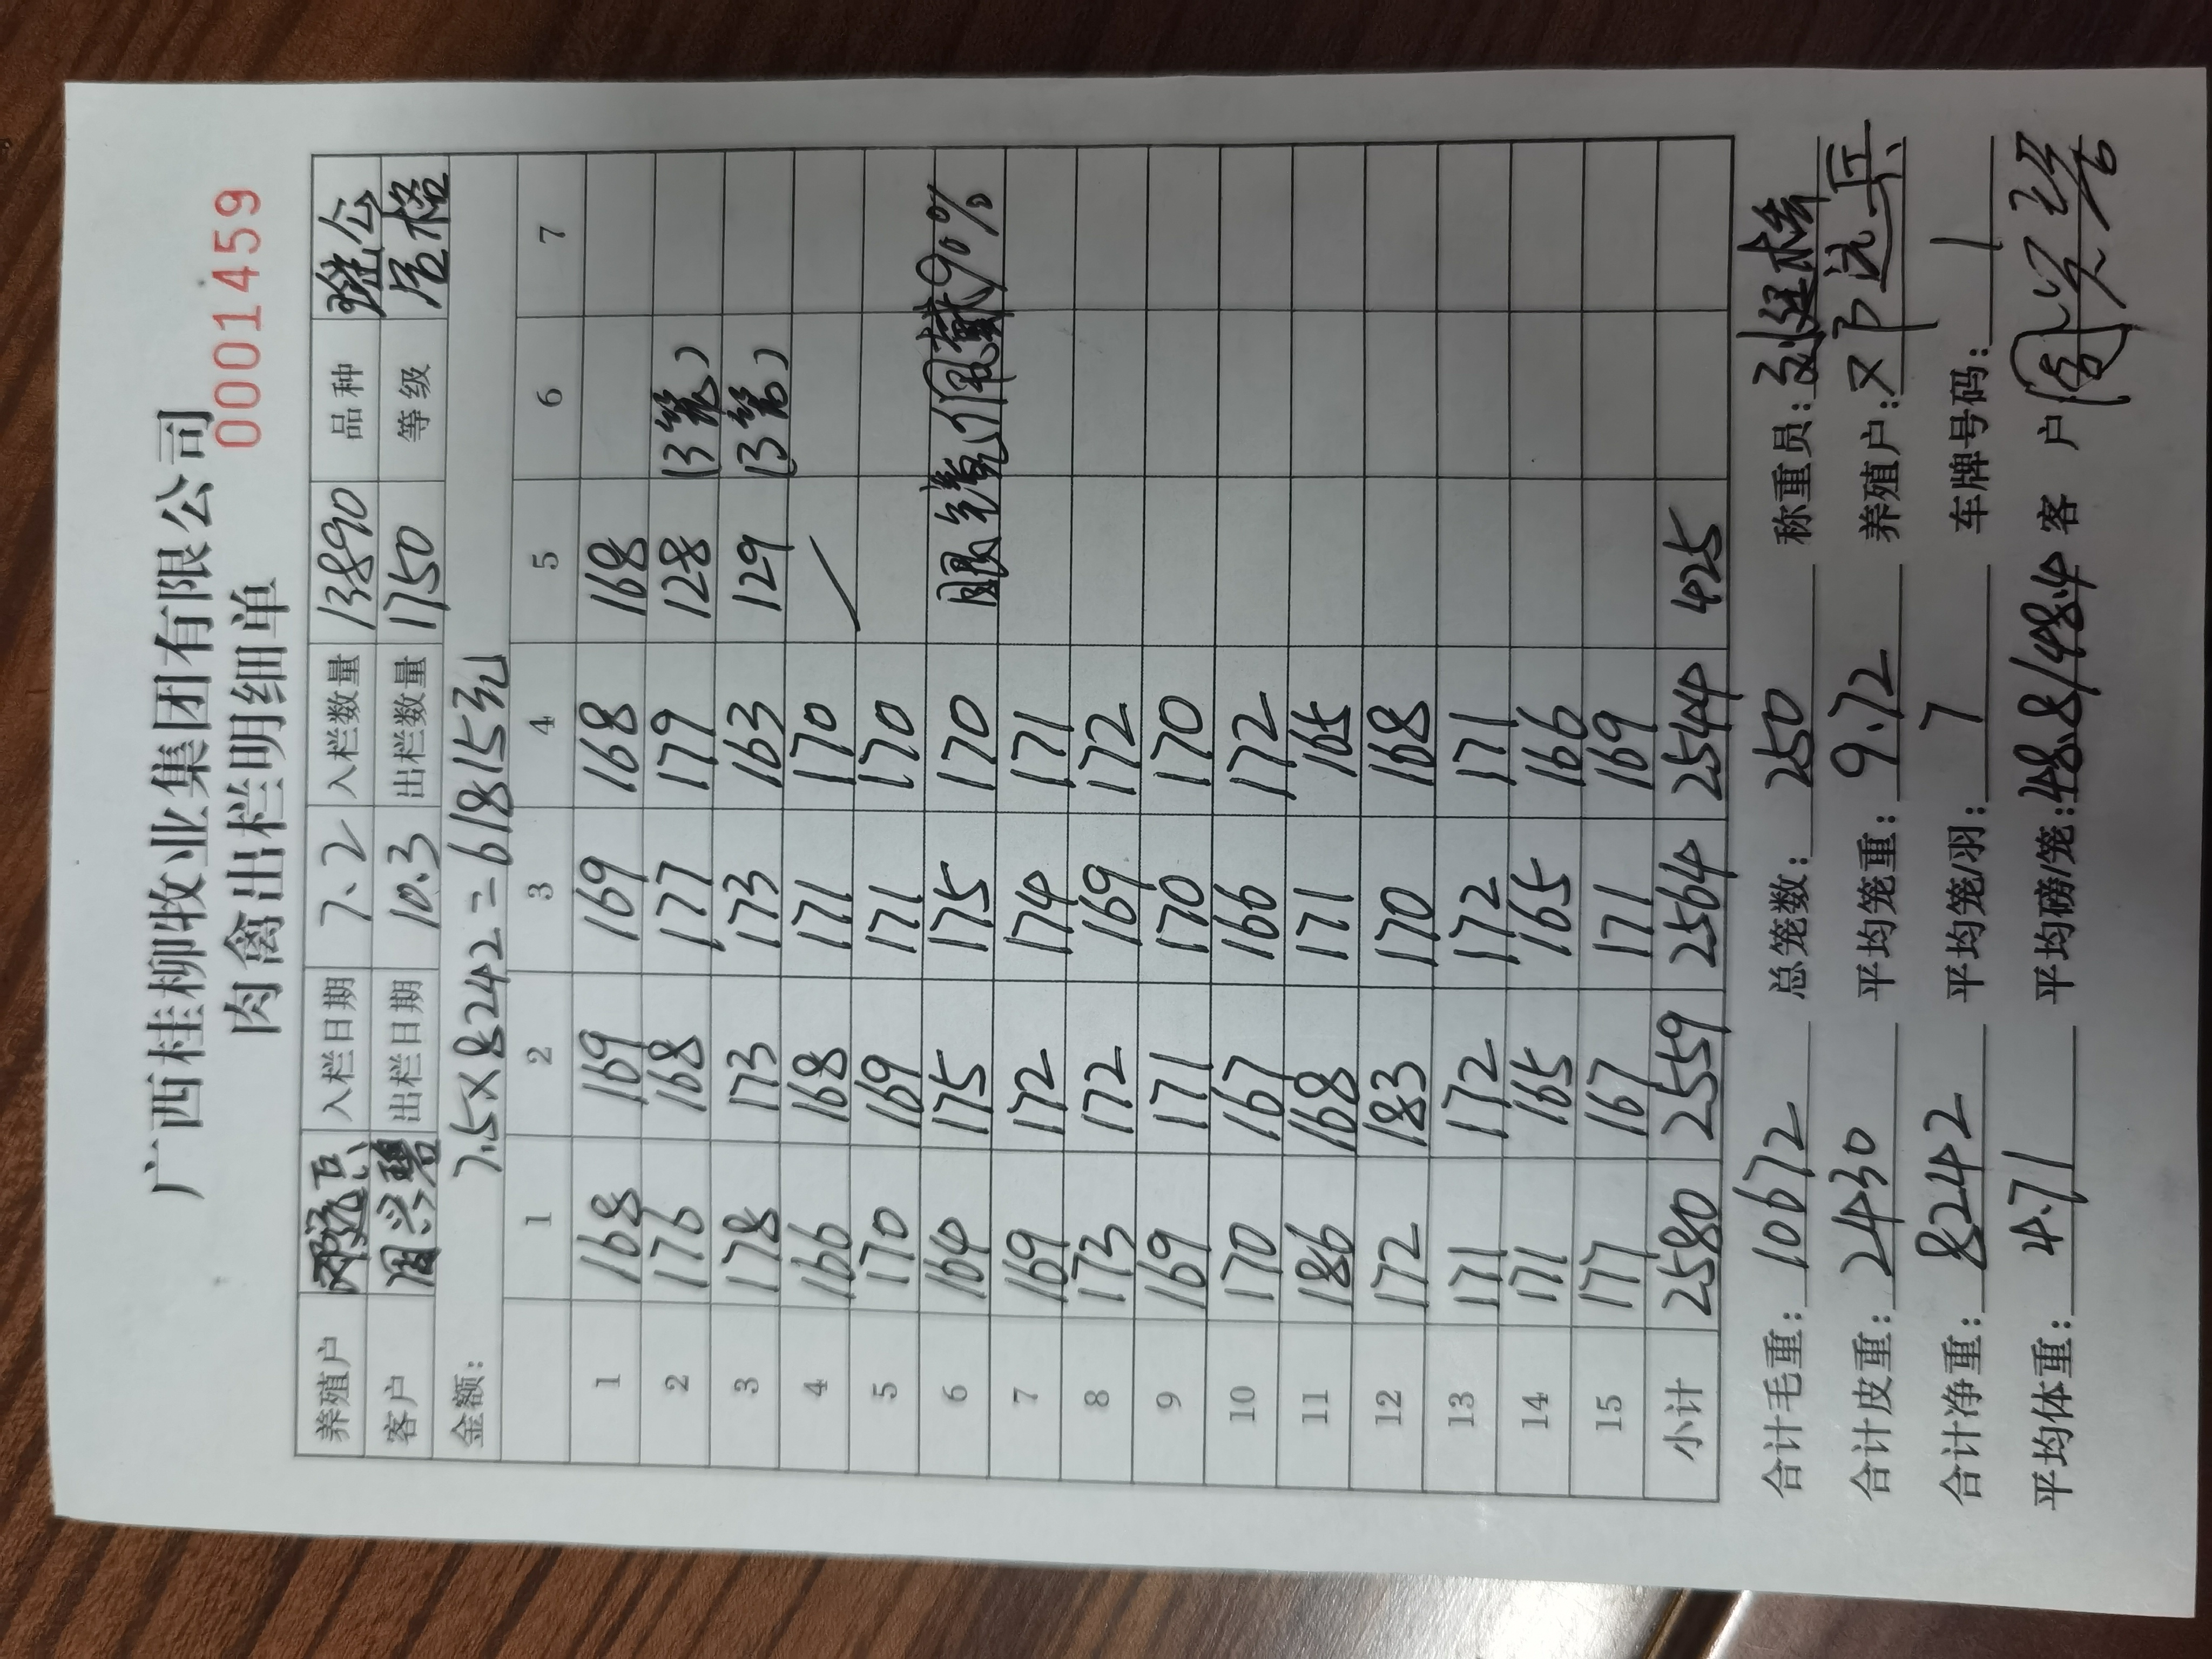 广西桂柳牧业集团有限公司
肉禽出栏明细单
0001459
养殖户 邓远兵 入栏日期 7.2 入栏数量 13890 品种
客户 周兴碧 出栏日期 10.3 出栏数量 1750 等级 合格
金额: 7.5×8242=61815元
1 2 3 4 5 6 7
1 168 169 169 168 168
2 176 168 177 179 128 (3笼)
3 178 173 173 163 129 (3笼)
4 166 168 171 170
5 170 169 171 170
6 164 175 175 170 90%
7 169 172 174 171
8 173 172 169 172
9 169 171 170 170
10 170 167 166 172
11 186 168 171 165
12 172 183 170 168
13 171 172 172 171
14 171 165 165 166
15 177 167 171 169
小计 2580 2559 2564 2544 425
合计毛重: 10672 总笼数: 250 称重员:
合计皮重: 2430 平均笼重: 9.72 养殖户: 邓远兵
合计净重: 8242 平均笼/羽: 7 车牌号码: 1
平均体重: 4.71 平均磅/笼: 48.8/48.4 客 户 周兴碧